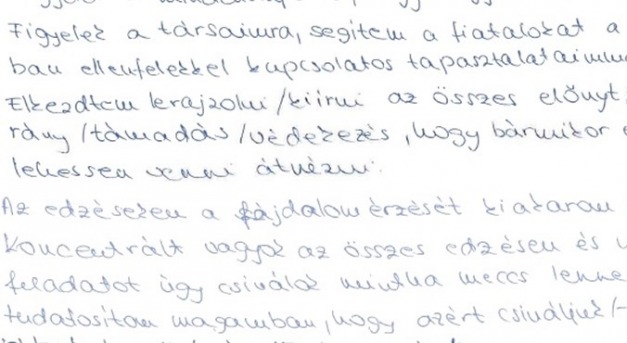 Figyelek a társaimra, segítem a fiatalokat a
ban ellenfelekkel kapcsolatos tapasztalataimm
Elkezdtem lerajzolni/kiírni az összes előnyt
rány/támadás/védekezés, hogy bármikor
lehessen venni átnézni.
Az edzéseken a fájdalom érzését kiakarom
Koncentrált vagyok az összes edzésen és
feladatot úgy csinálok mintha meccs lenne
tudatosítom magamban, hogy azért csináljuk/-